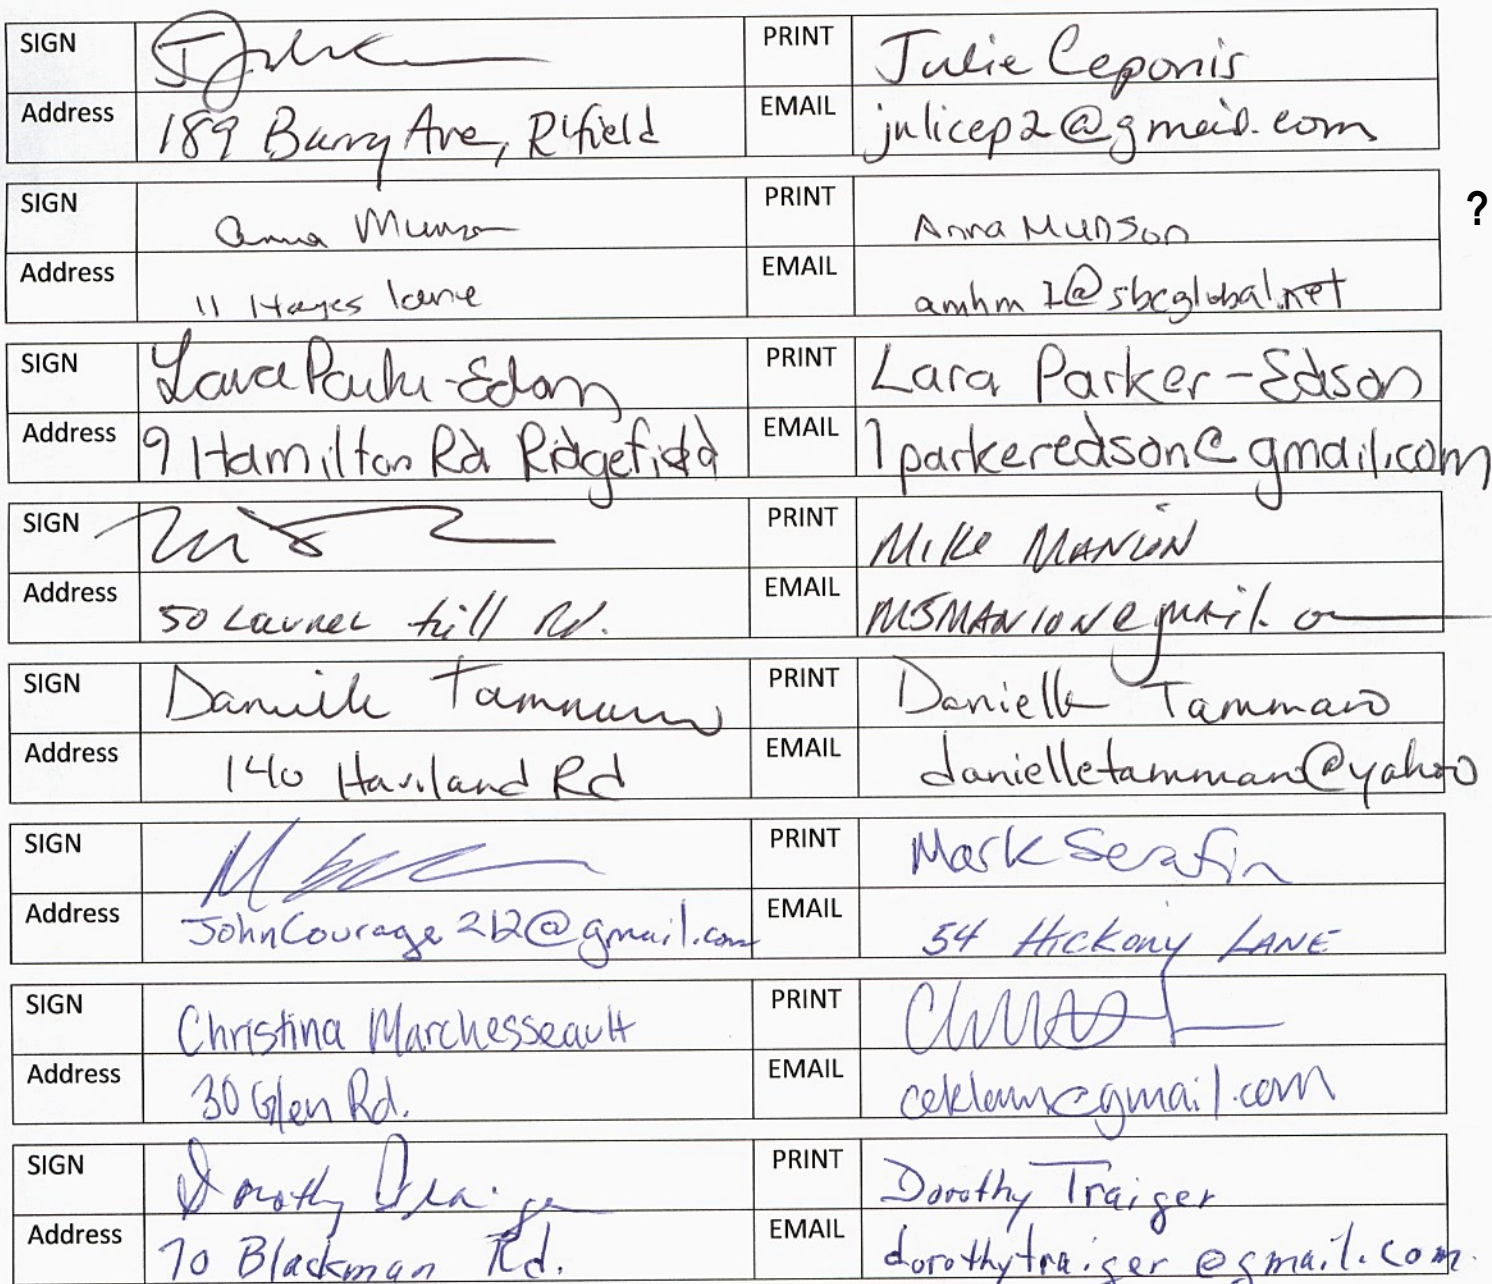 SIGN PRINT Julie Ceponis
Address 189 Barry Ave, R'field EMAIL julicep2@gmail.com
SIGN Anna Munson PRINT Anna Munson ?
Address 11 Hayes lane EMAIL amhm1@sbcglobal.net
SIGN Lara Parker-Edson PRINT Lara Parker-Edson
Address 9 Hamilton Rd Ridgefield EMAIL lparkeredson@gmail.com
SIGN PRINT Mike
Address 50 Laurel hill Rd. EMAIL MSMANION@gmail.
SIGN Danielle Tammaro PRINT Danielle Tammaro
Address 140 Haviland Rd EMAIL danielletammaro@yahoo
SIGN PRINT Mark Serafin
Address JohnCourage212@gmail.com EMAIL 54 HICKORY LANE
SIGN Christina Marchesseault PRINT
Address 30 Glen Rd. EMAIL
SIGN Dorothy Traiger PRINT Dorothy Traiger
Address 70 Blackman Rd. EMAIL dorothytraiger@gmail.com.